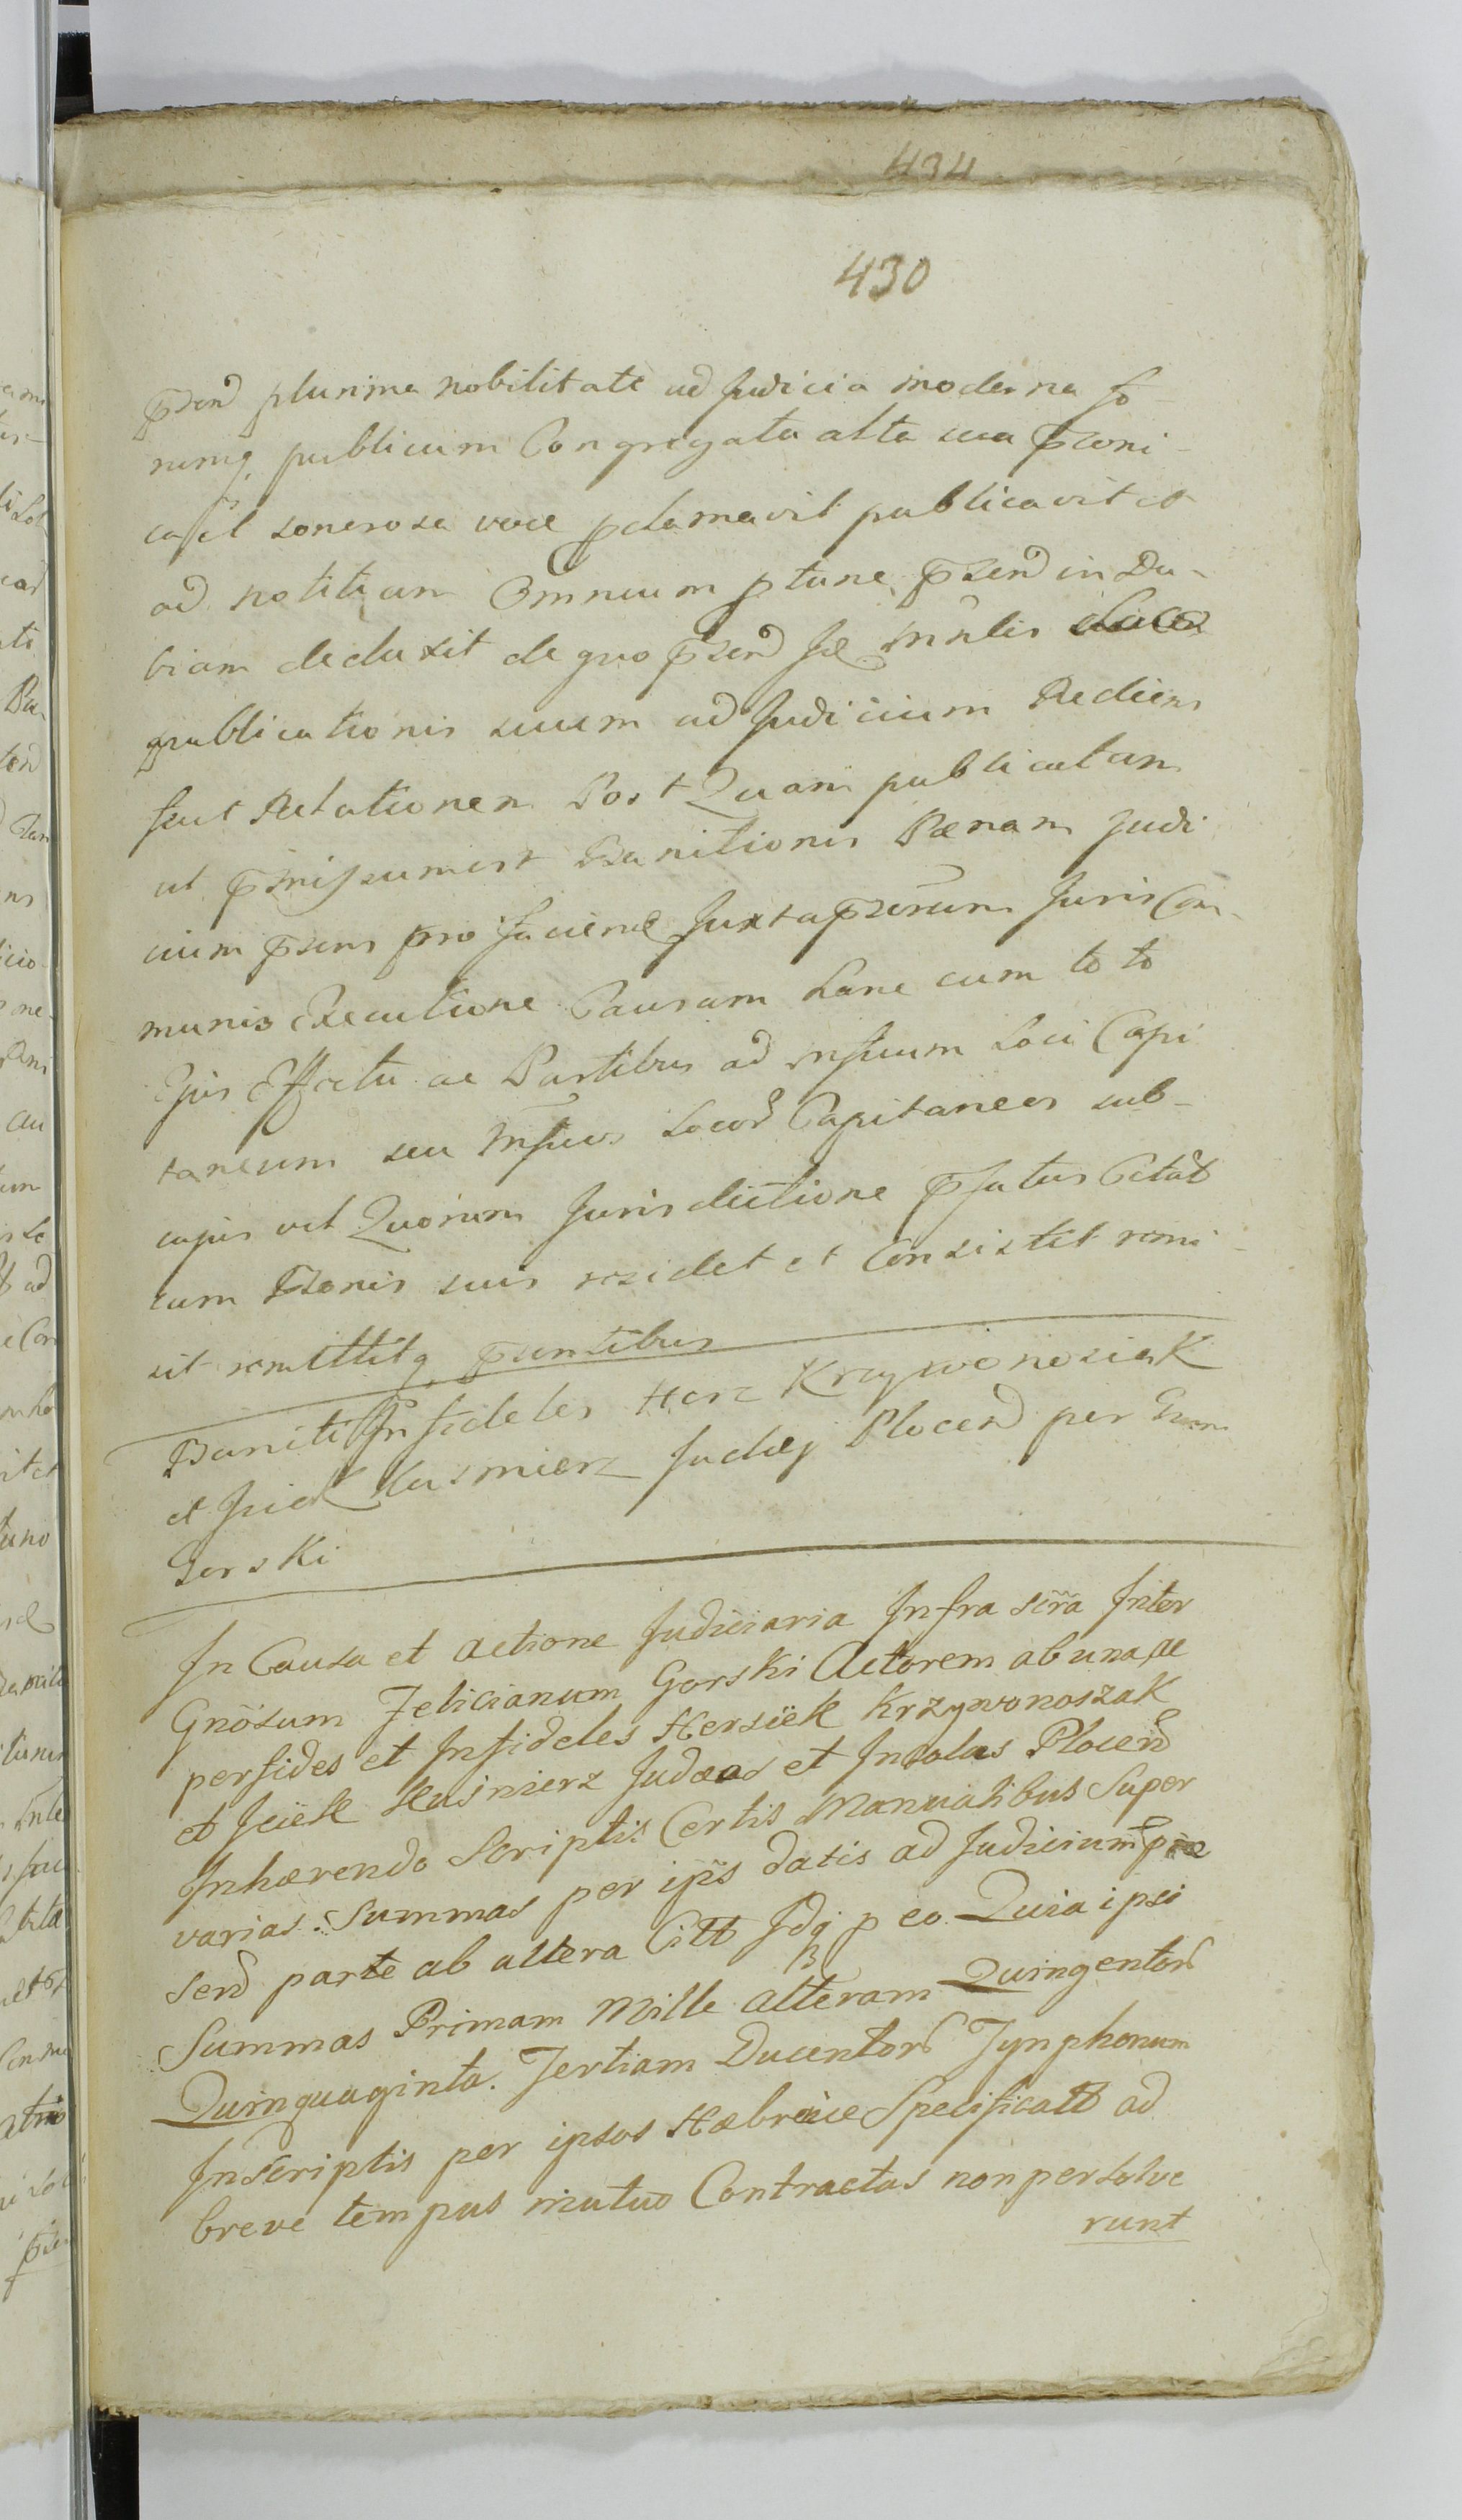 434
430
p̄send plurima nobilitate ad Judicia moderna fo-
rumq publicum Congregata alta sua p̄coni-
ca et sonorosa voce pclamavit publicavit et
ad notitiam Omnium ptunc p̄send in Du-
biam deduxit de quo p̄send se Mnlis
publicationis suum ad Judicium Rediens
fecit Relationem Post Quam publicatam
ut p̄missum est Banitionis Pænam Judi
cium p̄sens pro faciend Juxta p̄scrūm Juris Com-
munis Executione Causam hanc cum toto
Ejus Effectu ac Partibus ad Mfeum Loci Capi
taneum seu Mfcos Locord Capitaneos sub-
cujus vel Quorum Jurisdictione p̄fatus Citāt
cum B̄onis suis residet et Consistit remi-
sit remittitq p̄sentibus
Baniti Infideles Herz Krzywonosiak
et Jcick Kusmierz Judæj Plocend per Gnm
Gorski
In Causa et Actione Judiciaria Infra scr̃a Inter
Gnōsum Felicianum Gorski Actorem ab una ac
perfides et Infideles Hersiek Krzywonoszak
et Jciek Kusmierz Judæos et Incolas Plocend
Inhærendo Scriptis Certis Manualibus Super
varias Summas per ipsis datis ad Judicium præ
send parte ab altera Citt Idq p eo Quia ipsi
Summas Primam Mille alteram Quingentord
Quinquaginta. Tertiam Ducentord Tynphonum
In Scriptis per ipsos Hæbraice Specificatt ad
breve tempus mutuo Contractas non persolve
runt